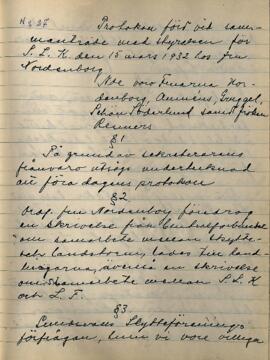 N:o 37
Protokoll fört vid sam-
manträde med styrelsen för
S.L.K. den 15 mars 1932 hos fru
Nordenborg
När voro Fruarna Nor-
denborg,
Söderlund samt fröken
§ 1
På grund av sekreterarens
frånvaro utsågs undertecknad
att föra dagens protokoll
§ 2
Ordf. fru Nordenborg föredrog
en skrivelse från
om samarbete mellan
landstorm, lades till hand-
lingarna, även en skrivelse
om samarbete mellan S.L.K
och L.F.
§ 3
Skytteförenings
förfrågan, vi vore villiga